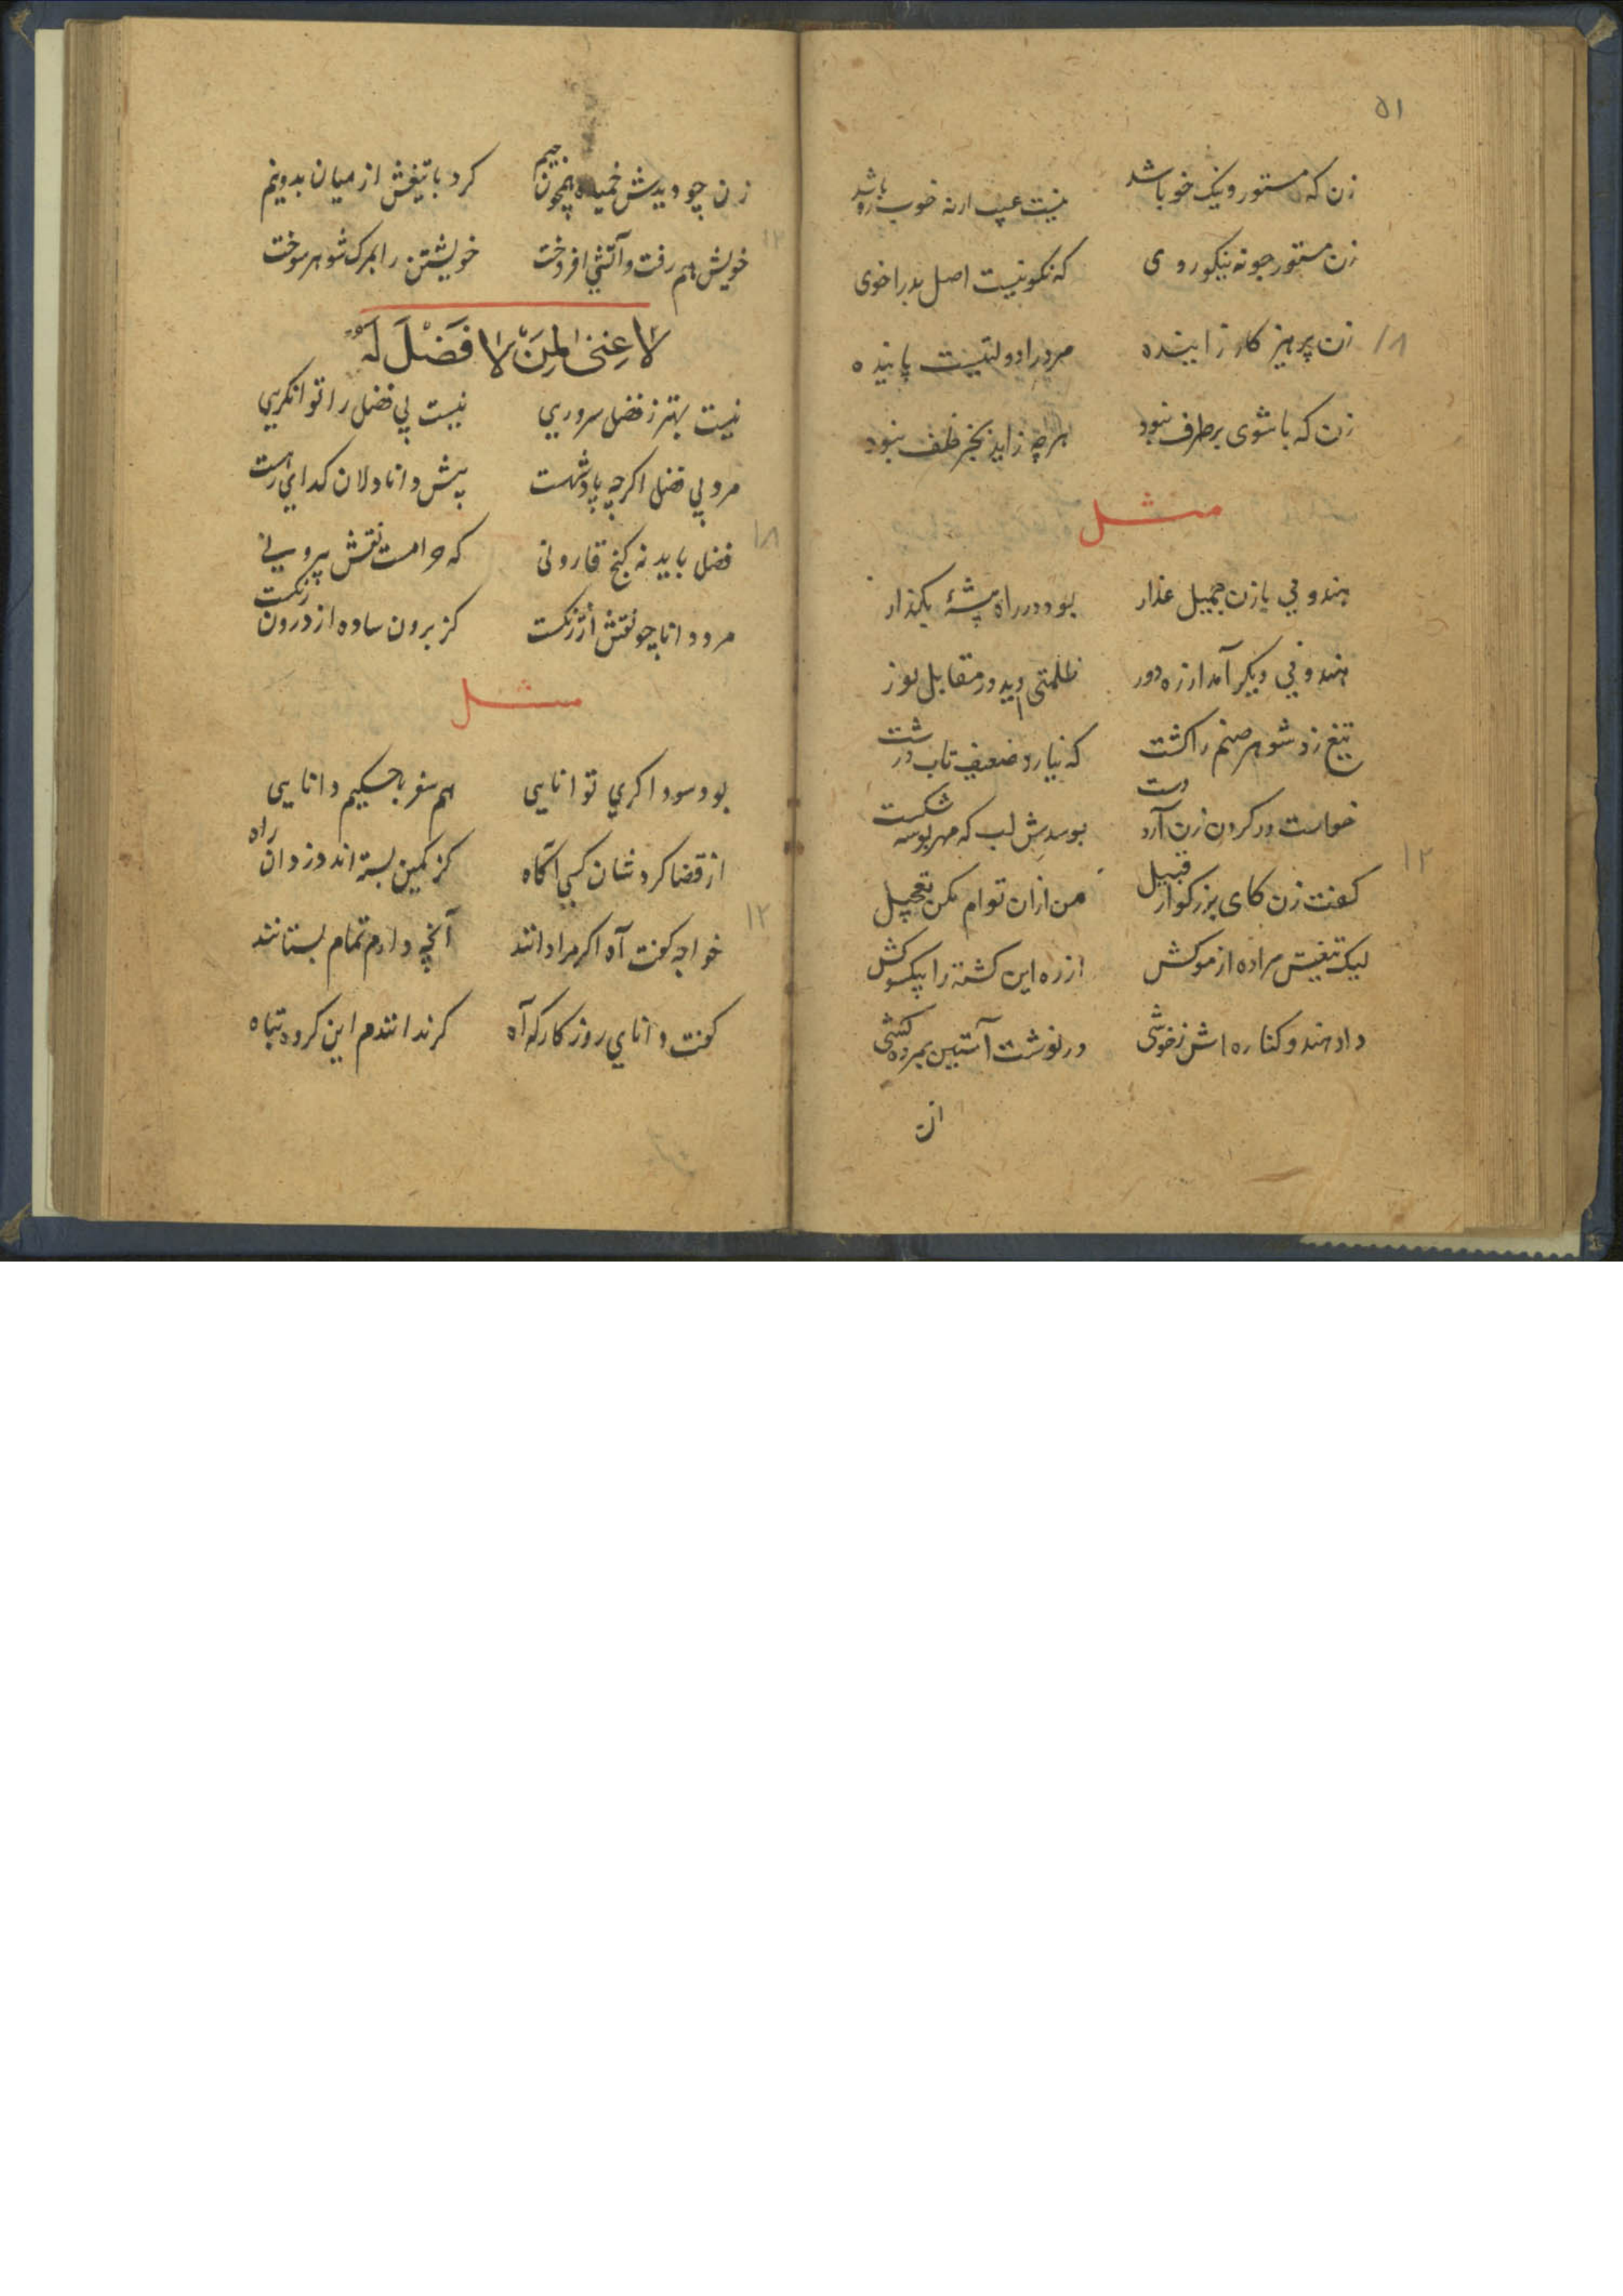 ۵۱
زن که مستور و نیک خو باشد نیست عیب ار نه خوب رو باشد
زن مستور جو نه نیکوروی که نکو نیست اصل بدرا خوی
زن پرهیز کار زاینده مرد را دولتیست پاینده
۱۸
زن که با شوی بر طرف نبود هر چه زاید بجز خلف نبود
مثل
هندویی با زن جمیل عذار بود در راه بیشهٔ بکذار
هندویی دیکر آمد از ره دور ظلمتی دید در مقابل نور
تیغ زد شوهر صنم را کشت که نیارد ضعیف تاب درشت
خواست در کردن زن آرد دست بوسدش لب که مهر بوسه شکست
۱۲
کفت زن کای بزرکوار قبیل من ازان توام مکن تعجیل
لیک تیغش مراده از موکش از ره این کشته را بیکسو کش
داد هندو کناره اش ز خوشی در نوشت آستین بمرده کشی
زن
زن چو دیدش خمیده همچون جیم کرد با تیغش از میان بدونیم
۱۲
خویش هم رفت و آتشی افروخت خویشتن را بمرک شوهر سوخت
لا غِنیٰ لِمَنْ لا فَضْلَ لَهُ
نیست بهتر ز فضل سروریی نیست بی فضل را توانکریی
مرد بی فضل اکرچه پادشهست پیش دانا دلان کدای رهست
۱۸
فضل باید نه کنج قارونی که حرامست نقش بیرونی
مرد دانا چو نقش ارژنکست کز برون ساده از درون رنکست
مثل
بود سوداکری توانایی هم سفر با حکیم دانایی
از قضا کردشان کسی آکاه کز کمین بسته اند دزدان راه
۱۲
خواجه کفت آه اکر مرا دانند آنچه دارم تمام بستانند
کفت دانای روزکار که آه کر ندانندم این کروه تباه